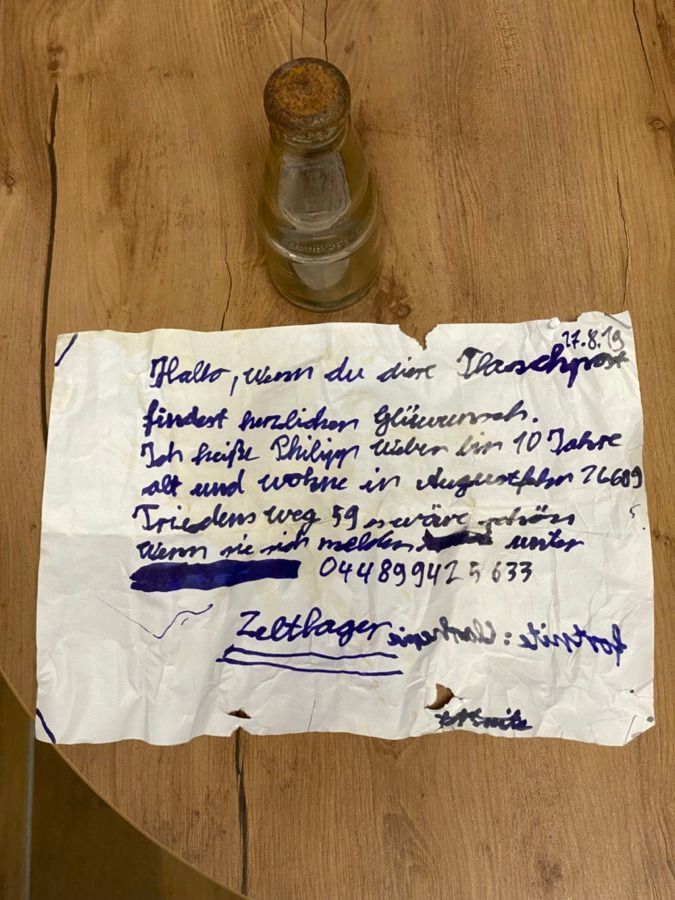 17.8.19
Hallo, wenn du diese Flaschpost
findest herzlichen Glüwunsch.
Ich heiße Philipp Weber bin 10 Jahre
alt und wohne in Augustfehn 26689
Friedens weg 59 es wäre schön
Wenn sie sich melden unter
04489942 5 633
Zeltlager